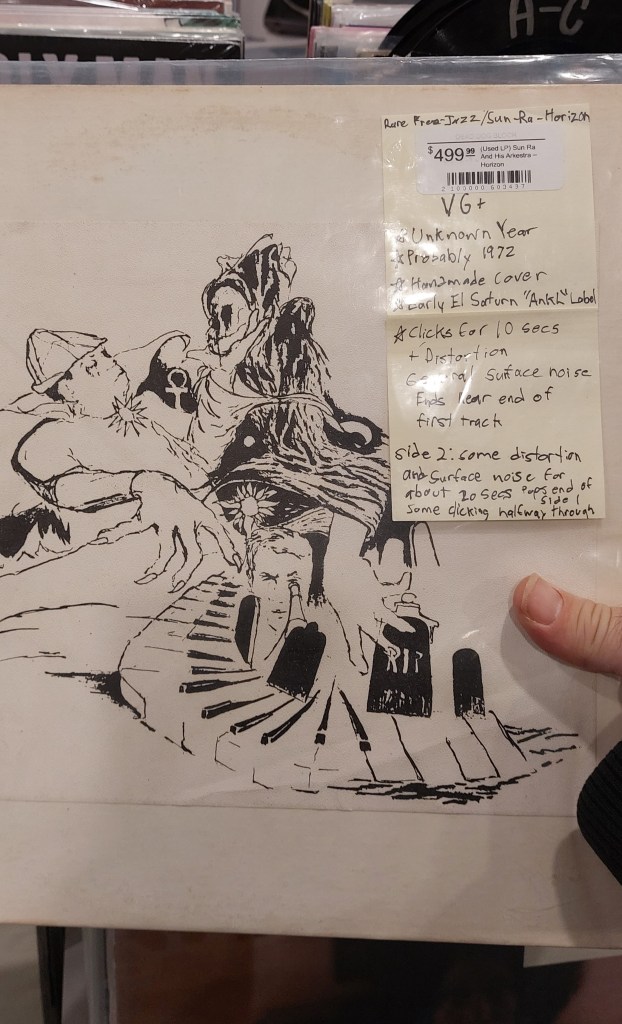 A-C
Rare Free-Jazz/Sun-Ra-Horizon
$499.99
(Used LP) Sun Ra
And His Arkestra –
Horizon
2 100000 603437
VG+
☆ Unknown Year
☆ Probably 1972
☆ Handmade cover
☆ Early El Saturn "Ankh" Label
☆ Clicks for 10 secs
+ Distortion
General surface noise
Ends near end of
first track
side 2: some distortion
and surface noise for
about 20 secs Pops end of
side 1
some clicking halfway through
RIP